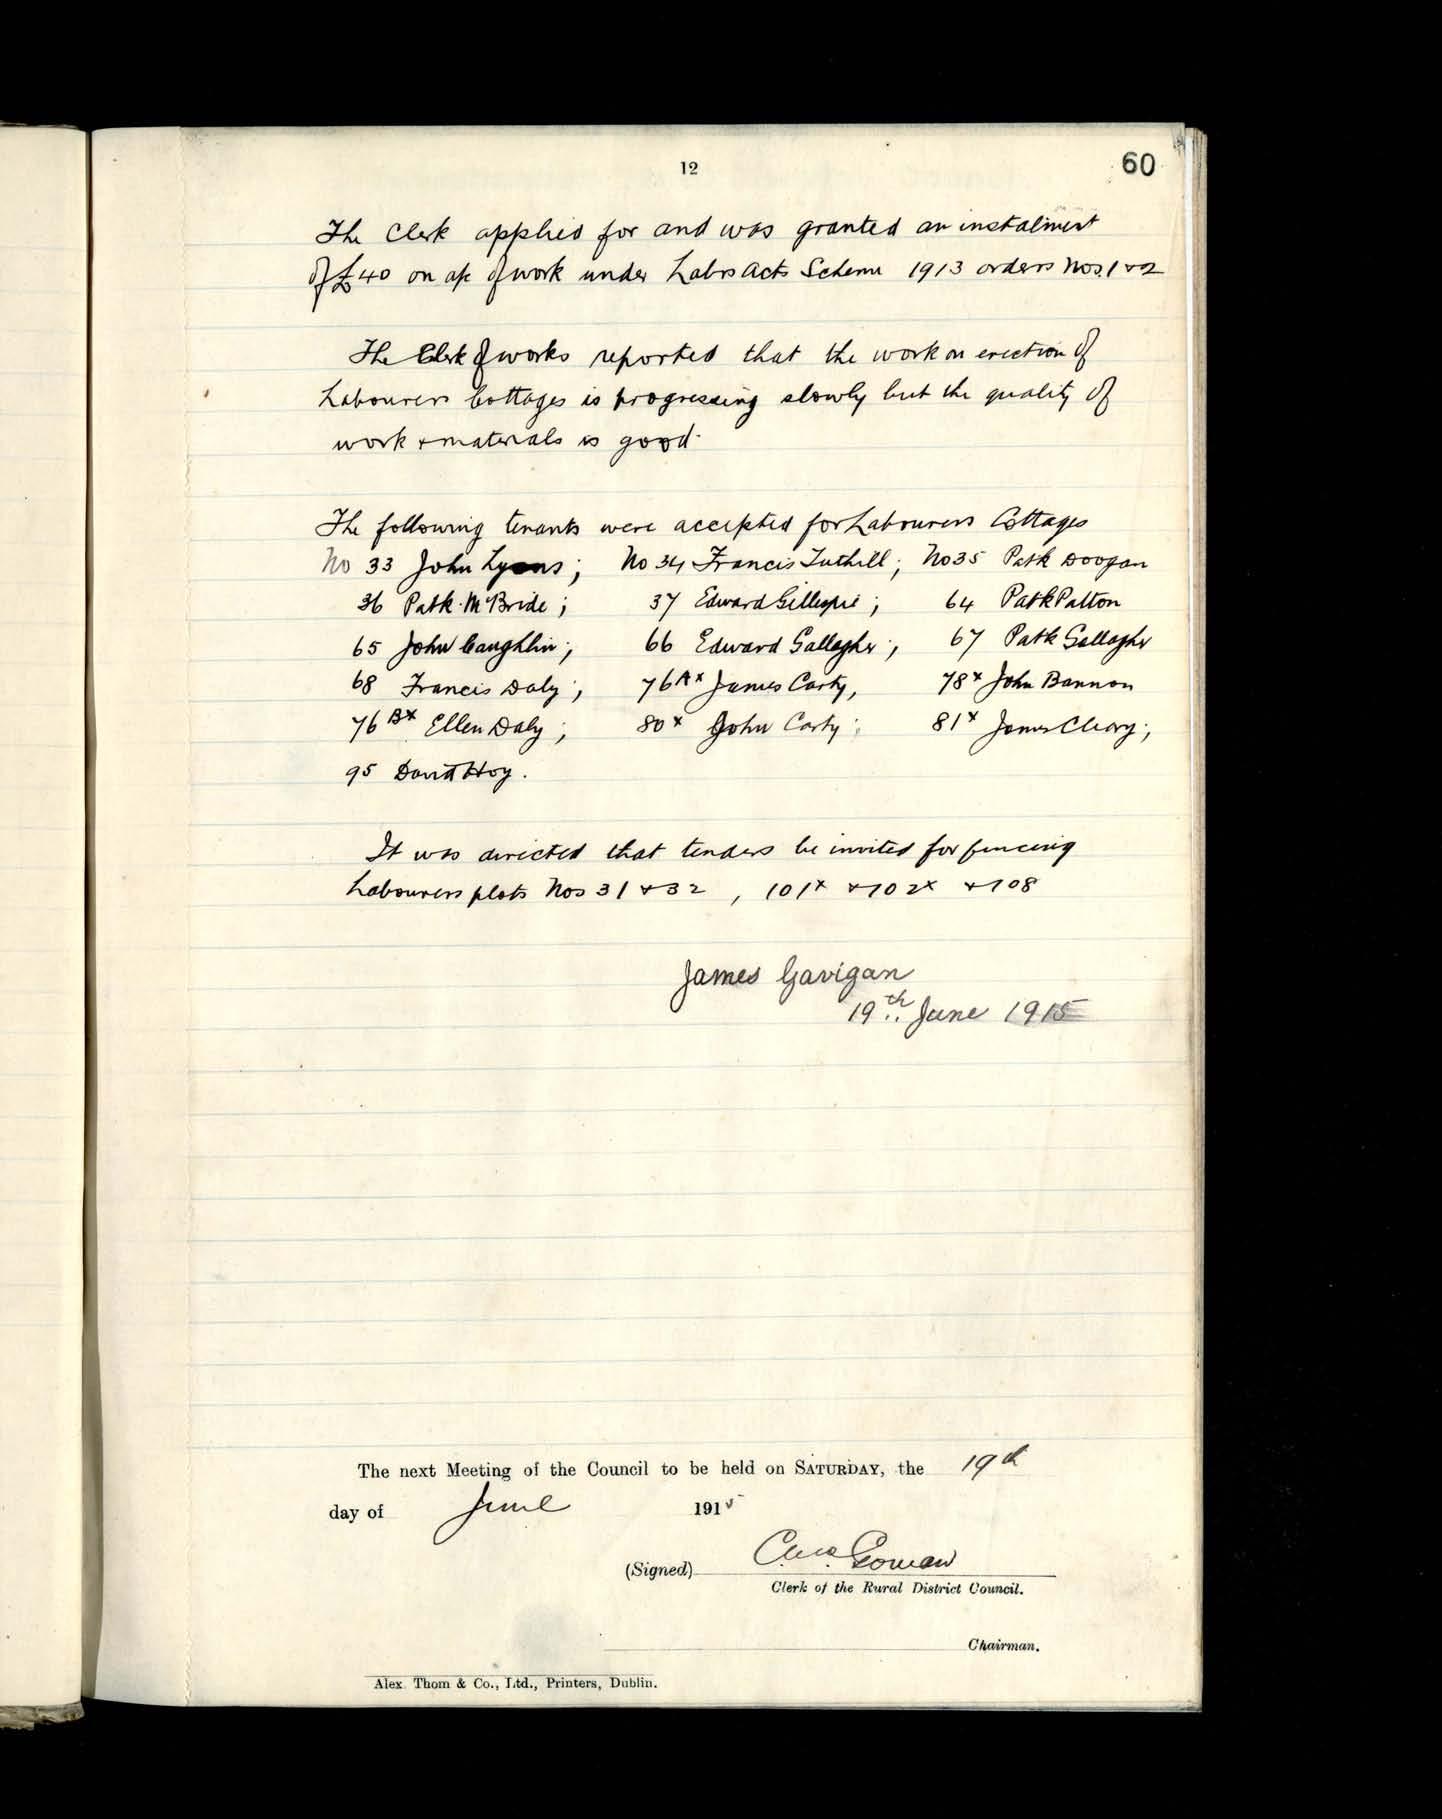 12
60
The Clerk applied for and was granted an instalment
of £40 on a/c of work under Labrs Acts Scheme 1913 orders Nos. 1 & 2
The Clerk of works reported that the work on erection of
Labourers Cottages is progressing slowly but the quality of
work & materials is good.
The following tenants were accepted for Labourers Cottages
No 33 John Lyons; No 34 Francis Tuthill; No 35 Patk Doogan
36 Patk. McBride; 37 Edward Gillespie; 64 Patk Patton
65 John Caughlin; 66 Edward Gallagher; 67 Patk Gallagher
68 Francis Daly; 76Ax James Carty, 78x John Bannon
76Bx Ellen Daly; 80x John Carty; 81x James Cleary;
95 David Hoy.
It was directed that tenders be invited for fencing
Labourers plots Nos 31 & 32, 101x & 102x & 108
James Gavigan
19th June 1915
The next Meeting of the Council to be held on SATURDAY, the 19th
day of June 1915
(Signed) Chas. Gowan
Clerk of the Rural District Council.
Chairman.
Alex. Thom & Co., Ltd., Printers, Dublin.